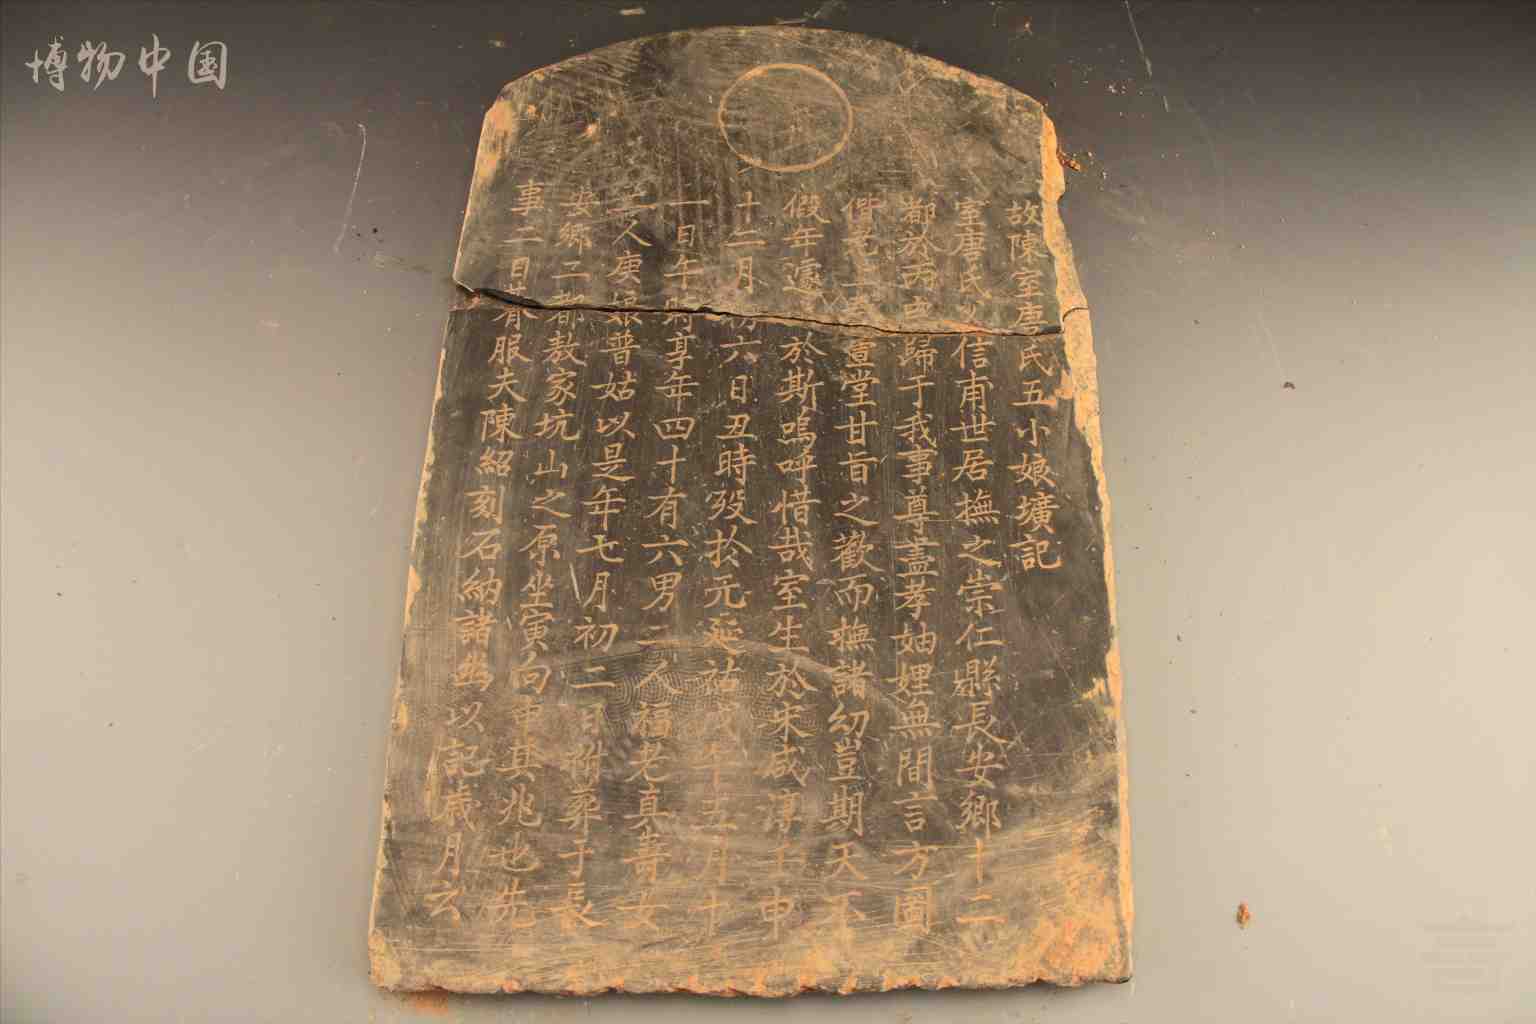 博物中国
故陳室唐氏五小娘壙記
室唐氏父信甫世居撫之崇仁縣長安鄉十二
都於丙歸于我事尊盡孝妯娌無間言方圖
偕老萱堂甘旨之歡而撫諸幼豈期天不
假年遽於斯嗚呼惜哉室生於宋咸淳壬申
十二月初六日丑時歿於元延祐戊午五月十
一日午時享年四十有六男二人福老真壽女
二人庚娘普姑以是年七月初二日附葬于長
安鄉二都敖家坑山之原坐寅向申其兆也先
事二日春服夫陳紹刻石納諸幽以記歲月云